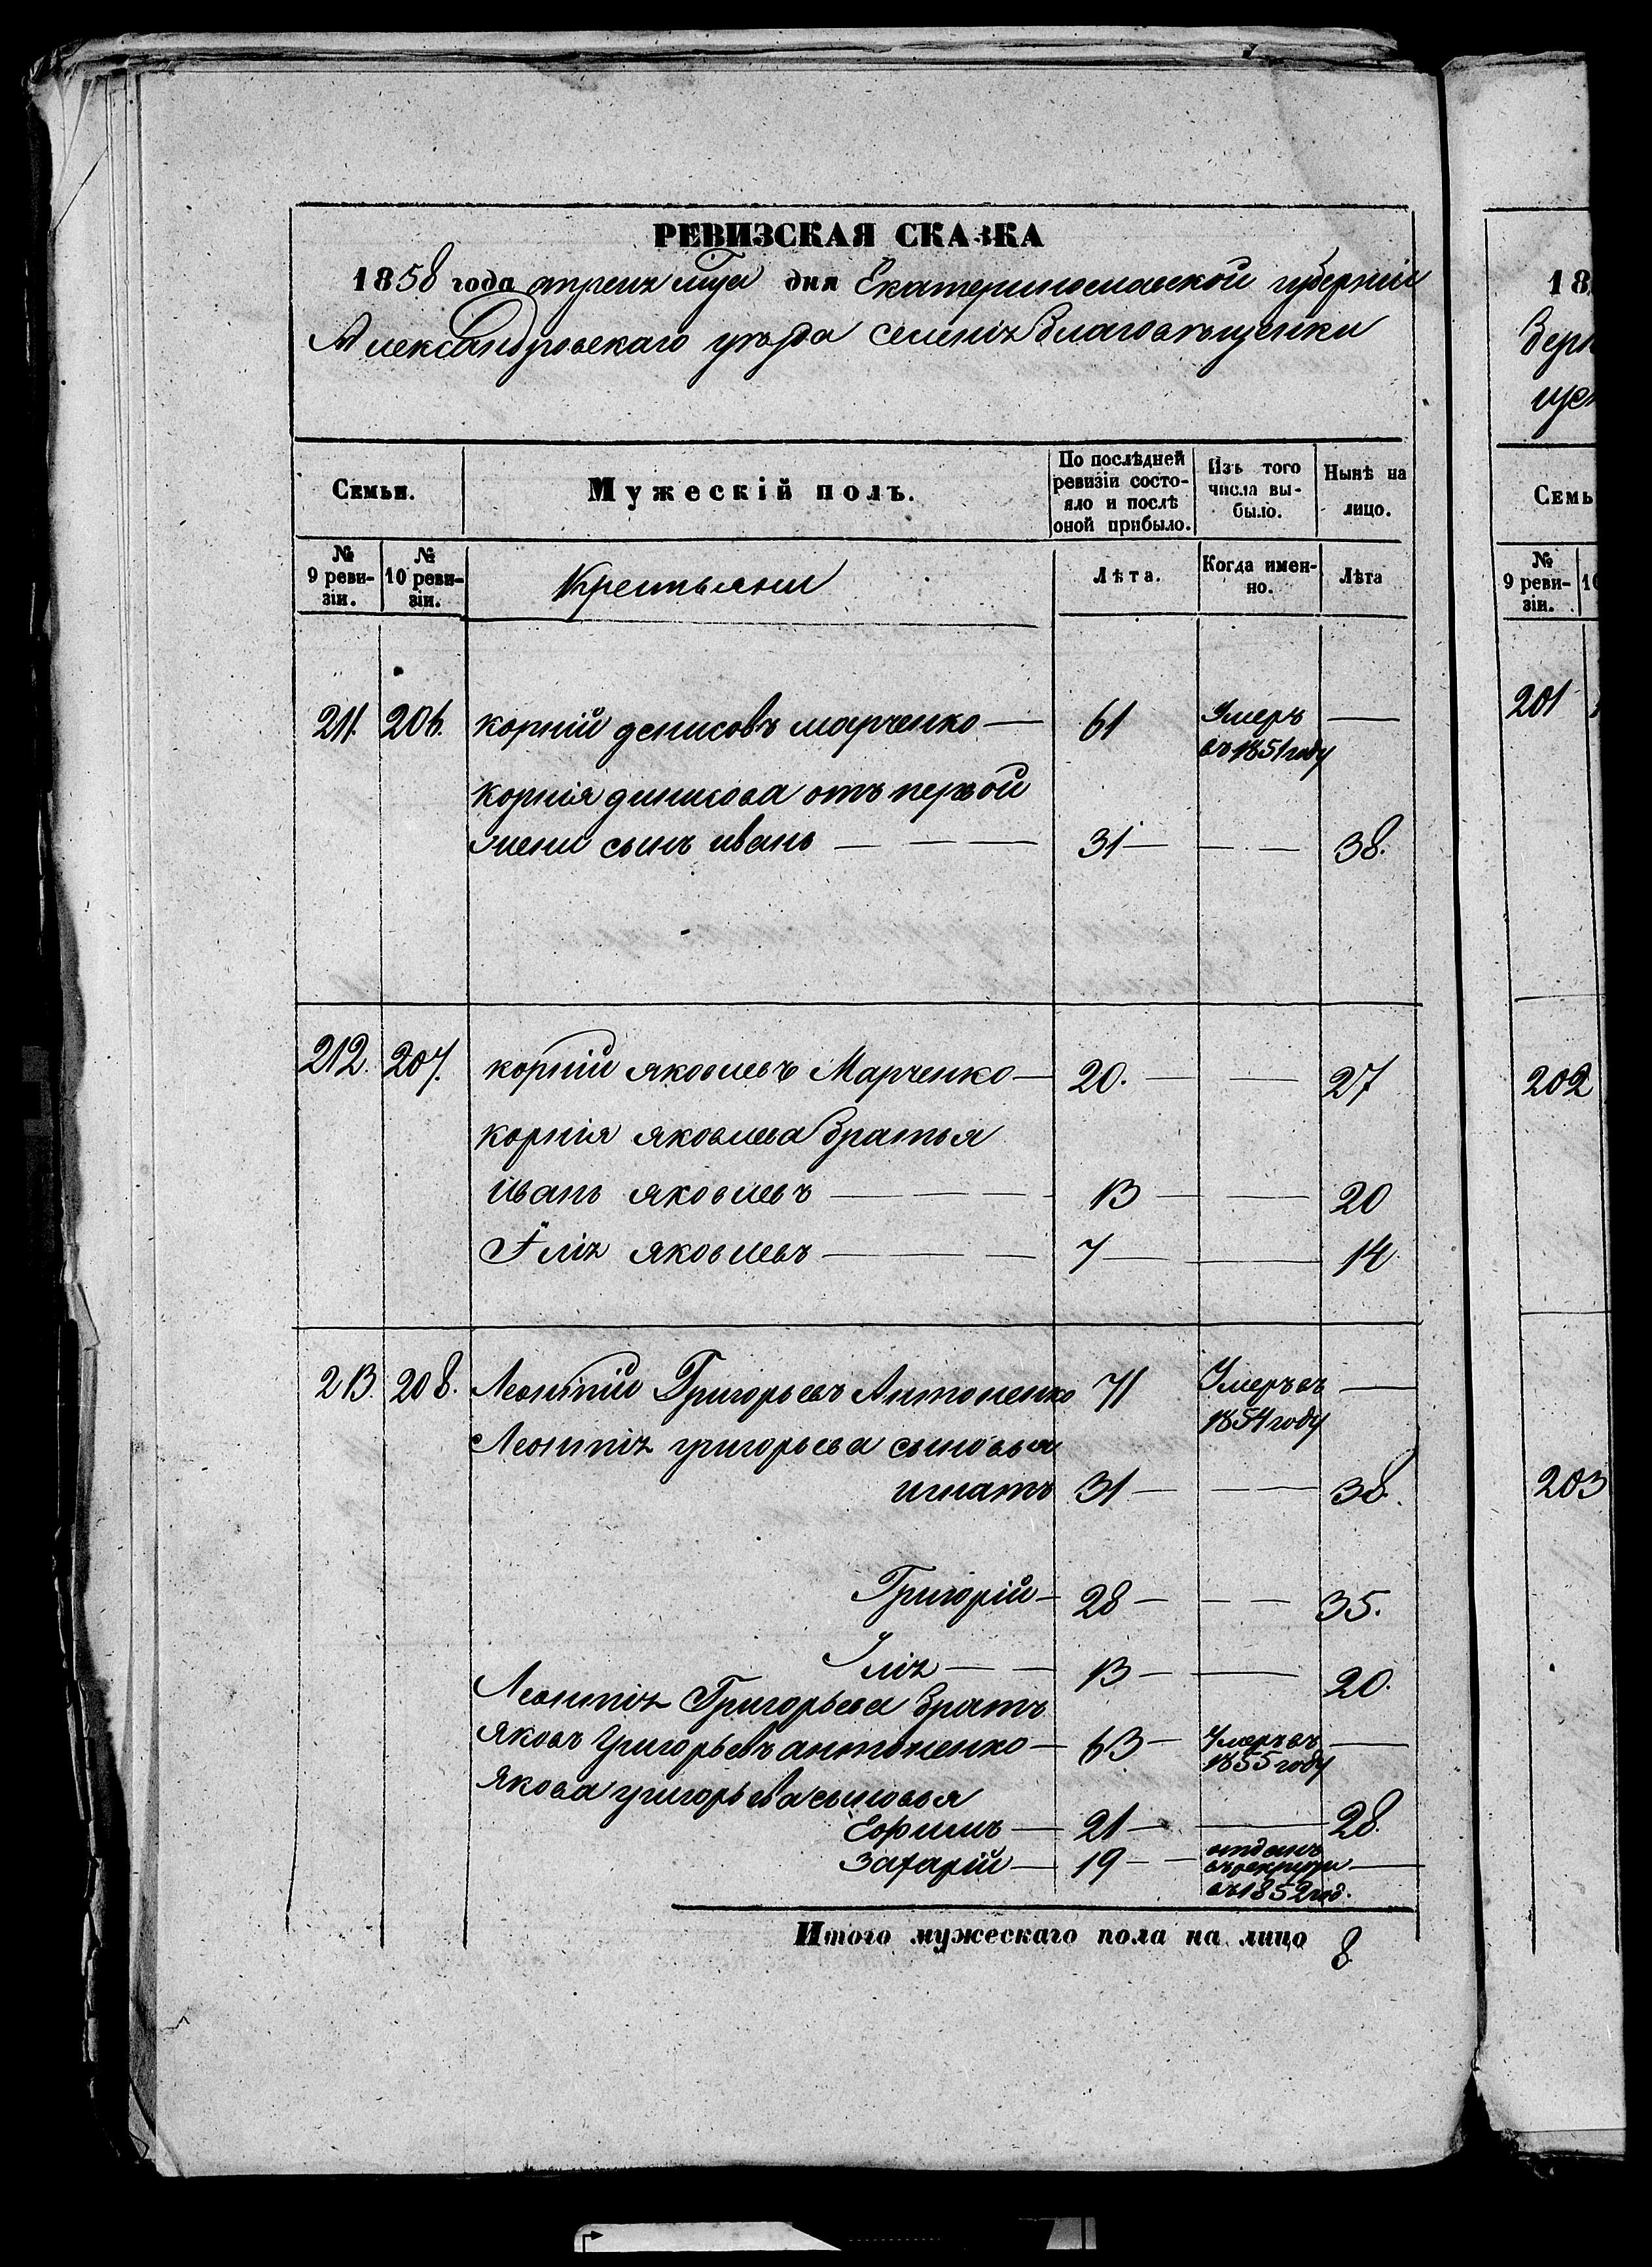 РЕВИЗСКАЯ СКАЗКА
1858 года апреля мца дня Екатеринославской губерніи
Александровскаго уѣзда селенія Благовѣщенки
Семьи.
Мужескій полъ.
По послѣдней ревизіи состо-
яло и послѣ
оной прибыло.
Изъ того
числа вы-
было.
Нынѣ на
лицо.
№
9 реви-
зіи.
№
10 реви-
зіи.
Крестьяни
Лѣта.
Когда имен-
но.
Лѣта
211. 206. корній денисовъ марченко — 61 Умеръ —
въ 1851 году
корнія динисова отъ первой
жени сынъ иванъ — — — 31 — — — 38.
212. 207. корній яковлевъ Марченко — 20. — — 27
корнія яковлева братья
иванъ яковлевъ — — — — 13 — — 20
Илія яковлевъ — — — — 7 — — 14
213. 208. Леонтій Григорьевъ Антоненко 71 Умеръ въ —
1854 году
Леонтія григорьева сыновья
игнатъ 31 — — — 38.
Григорій — 28 — — — 35.
Илія — — 13 — — 20.
Леонтія Григорьева братъ
Яковъ Григорьевъ антоненко — 63 — Умеръ въ —
1855 году
Якова григорьева сыновья
Ефимъ — 21 — — 28.
Захарій — 19 — отданъ
въ рекруты —
въ 1852 год.
Итого мужескаго пола на лицо 8
18
Верх
щен
Семь
№
9 реви-
зіи.
10
201
202
203